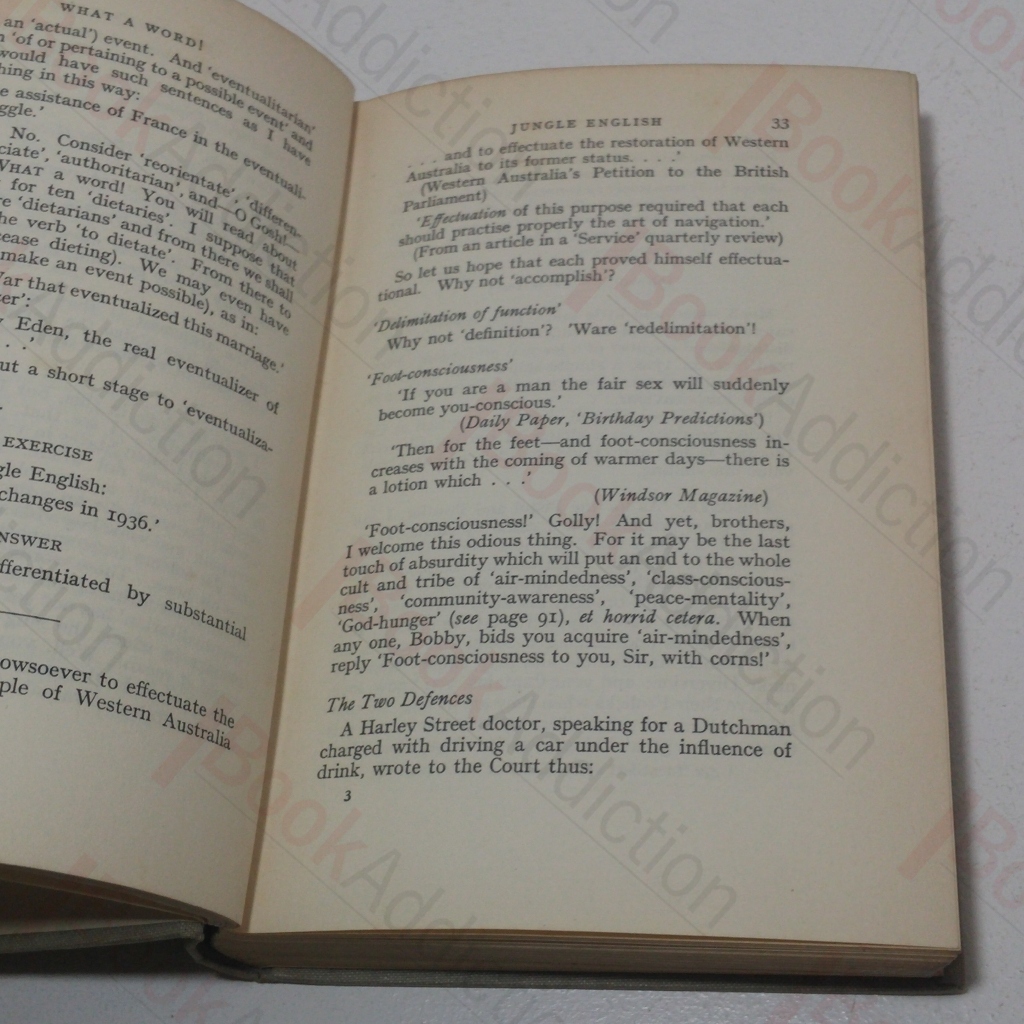 WHAT A WORD!
an 'actual') event. And 'eventualitarian'
'of or pertaining to a possible event' and
would have such sentences as I have
hing in this way:
e assistance of France in the eventuali-
ggle.'
No. Consider 'reorientate', 'differen-
ciate', 'authoritarian', and—O Gosh!—
WHAT a word! You will read about
for ten 'dietaries'. I suppose that
re 'dietarians' and from there we shall
he verb 'to dietate'. From there to
ease dieting). We may even have
make an event possible), as in:
War that eventualized this marriage.'
er':
Eden, the real eventualizer of
. . .'
ut a short stage to 'eventualiza-
EXERCISE
gle English:
changes in 1936.'
NSWER
fferentiated by substantial
owsoever to effectuate the
ple of Western Australia
JUNGLE ENGLISH 33
. . . and to effectuate the restoration of Western
Australia to its former status. . . .'
(Western Australia's Petition to the British
Parliament)
'Effectuation of this purpose required that each
should practise properly the art of navigation.'
(From an article in a 'Service' quarterly review)
So let us hope that each proved himself effectua-
tional. Why not 'accomplish'?
'Delimitation of function'
Why not 'definition'? 'Ware 'redelimitation'!
'Foot-consciousness'
'If you are a man the fair sex will suddenly
become you-conscious.'
(Daily Paper, 'Birthday Predictions')
'Then for the feet—and foot-consciousness in-
creases with the coming of warmer days—there is
a lotion which . . .'
(Windsor Magazine)
'Foot-consciousness!' Golly! And yet, brothers,
I welcome this odious thing. For it may be the last
touch of absurdity which will put an end to the whole
cult and tribe of 'air-mindedness', 'class-conscious-
ness', 'community-awareness', 'peace-mentality',
'God-hunger' (see page 91), et horrid cetera. When
any one, Bobby, bids you acquire 'air-mindedness',
reply 'Foot-consciousness to you, Sir, with corns!'
The Two Defences
A Harley Street doctor, speaking for a Dutchman
charged with driving a car under the influence of
drink, wrote to the Court thus:
3
BookAddiction